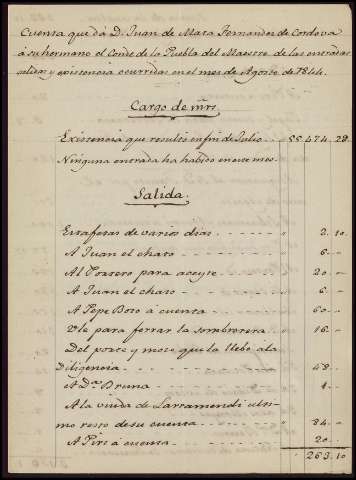 Cuenta que da D. Juan de Mata Fernandez de Cordova
á su hermano el Conde de la Puebla del Maestre de las entradas
salidas y existencia ocurridas en el mes de Agosto de 1844.
Cargo de mrs.
Existencia que resultó en fin de Julio 55,474.28
Ninguna entrada ha habido en este mes.
Salida.
Estafetas de varios dias " 2. 10.
A Juan el chato " 6. --
Al Portero para aceyte " 20. --
A Juan el chato " 6. --
A Pepe Bozo á cuenta " 60. --
Vle para ferrar la sombrerera " 16. --
Del porte y mozo que la llebó á la
Diligencia " 48. --
A Da. Bruna " 1. --
A la viuda de Larramendi ulti-
mo resto de su cuenta " 84. --
A Piri á cuenta " 20. --
263.10